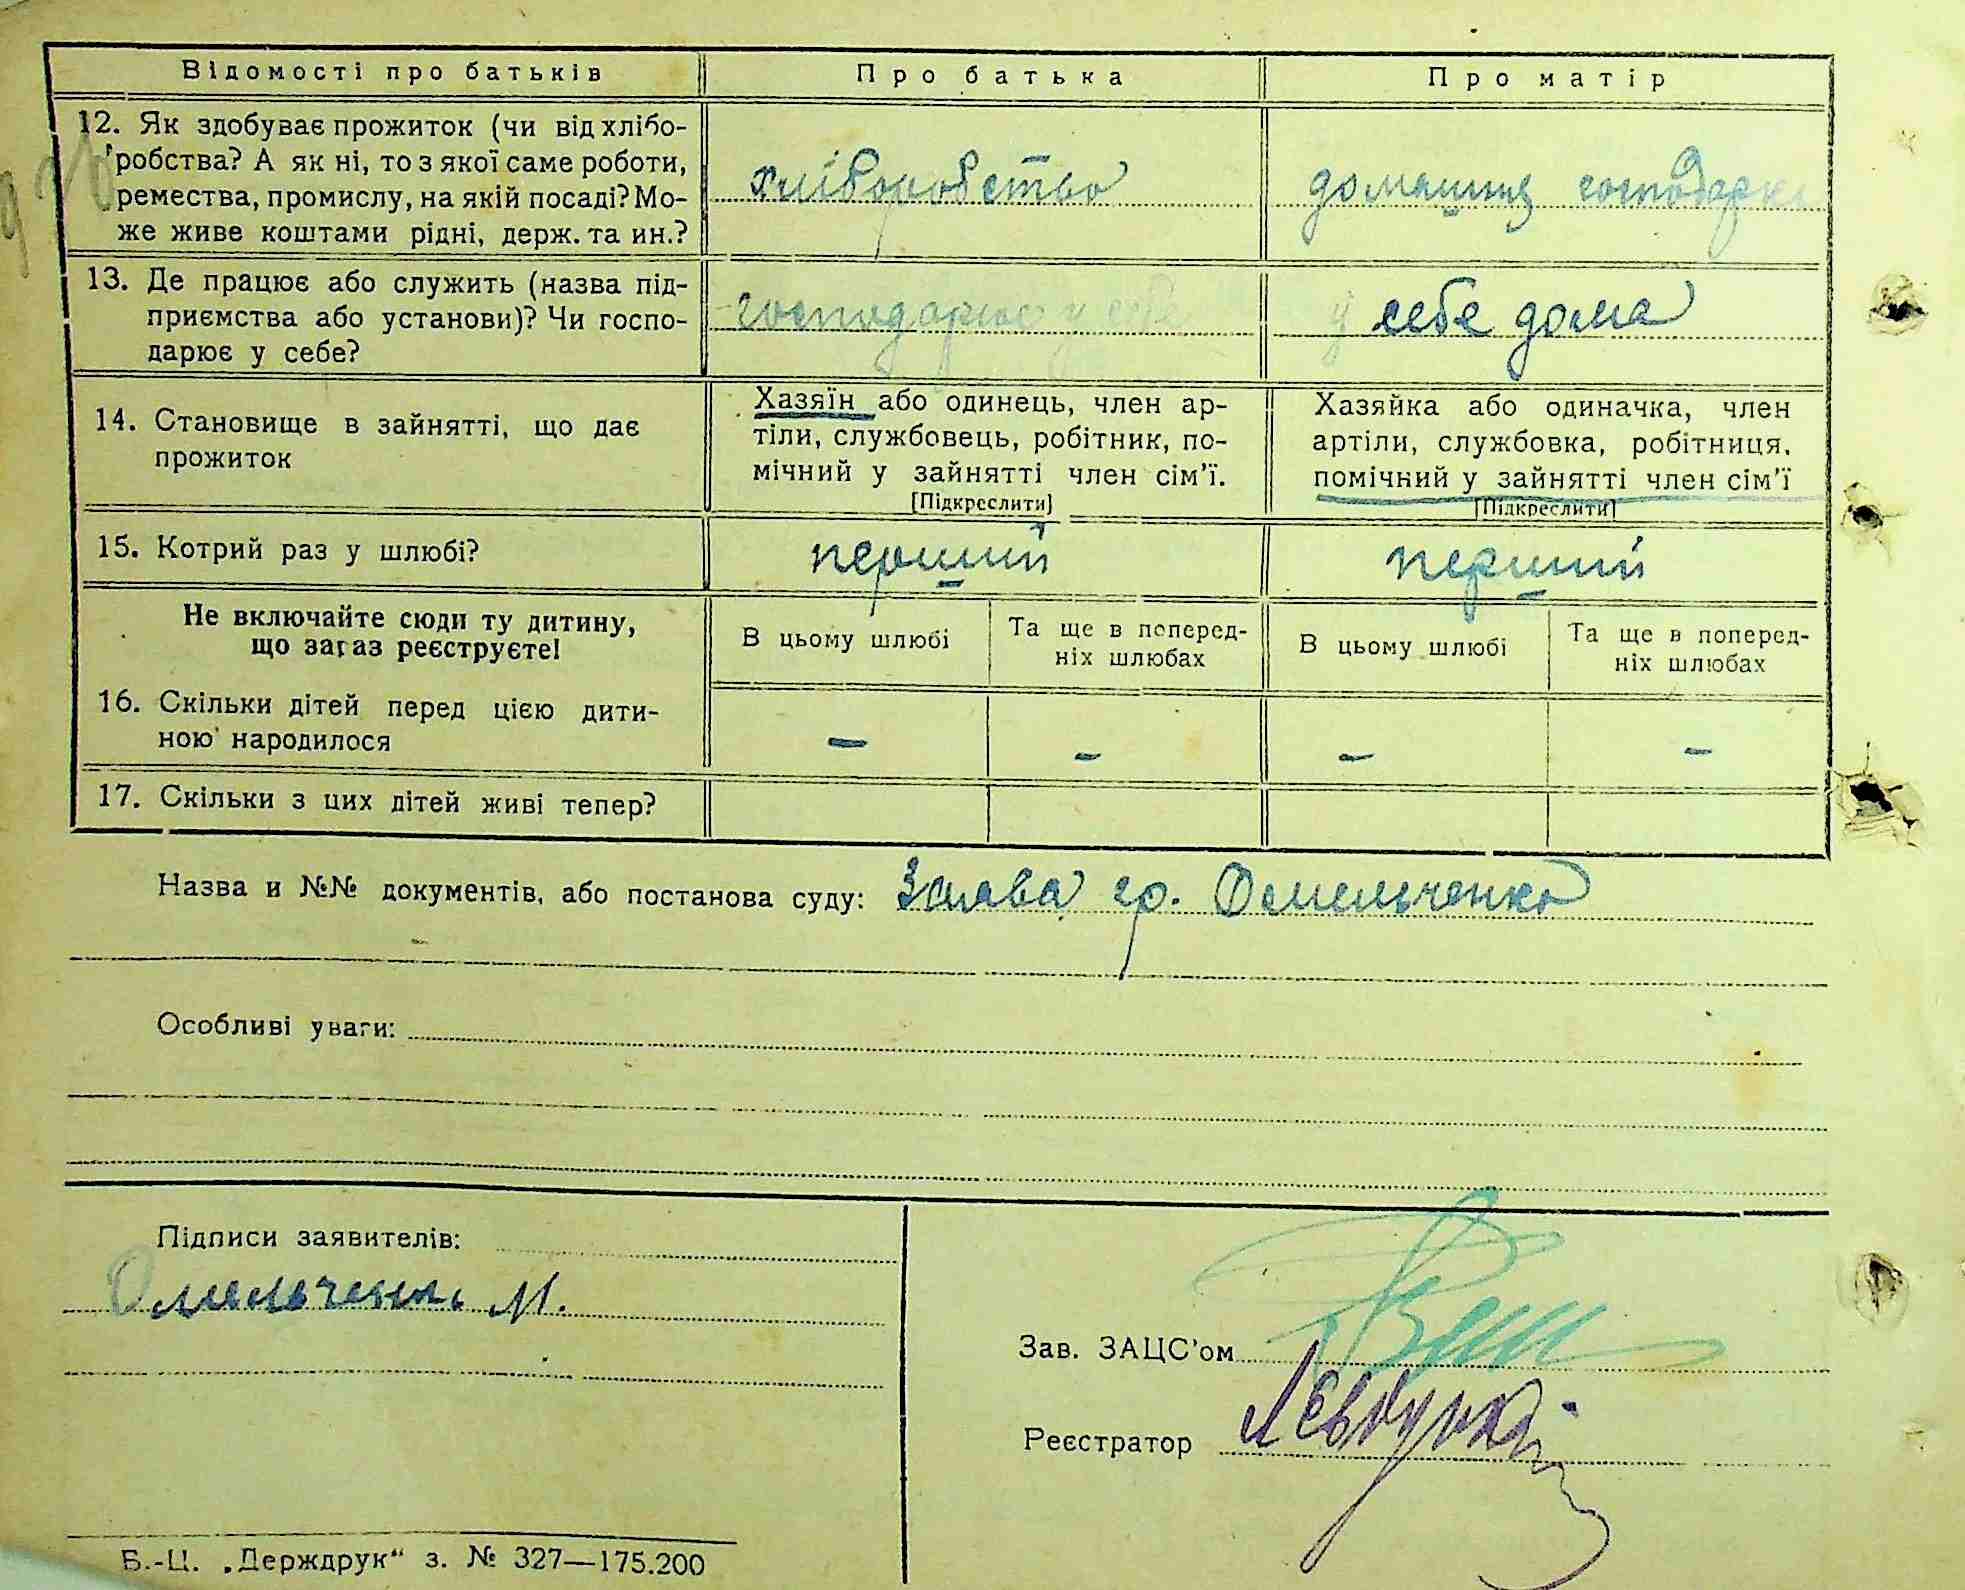 Відомості про батьків
Про батька
Про матір
12. Як здобуває прожиток (чи від хлібо-
робства? А як ні, то з якої саме роботи,
ремества, промислу, на якій посаді? Мо-
же живе коштами рідні, держ. та ин.?
хліборобство
домашня господарка
13. Де працює або служить (назва під-
приємства або установи)? Чи госпо-
дарює у себе?
господарює у себе
у себе дома
14. Становище в зайнятті, що дає
прожиток
Хазяїн або одинець, член ар-
тіли, службовець, робітник, по-
мічний у зайнятті член сім'ї.
[Підкреслити]
Хазяйка або одиначка, член
артіли, службовка, робітниця,
помічний у зайнятті член сім'ї
[Підкреслити]
15. Котрий раз у шлюбі?
перший
перший
Не включайте сюди ту дитину,
що зараз реєструєте!
В цьому шлюбі
Та ще в поперед-
ніх шлюбах
В цьому шлюбі
Та ще в поперед-
ніх шлюбах
16. Скільки дітей перед цією дити-
ною народилося
–
–
–
–
17. Скільки з цих дітей живі тепер?
Назва и №№ документів, або постанова суду: Заява гр. Омельченко
Особливі уваги:
Підписи заявителів:
Омельченко М.
Зав. ЗАЦС'ом
Реєстратор
Б.-Ц. „Держдрук“ з. № 327—175.200